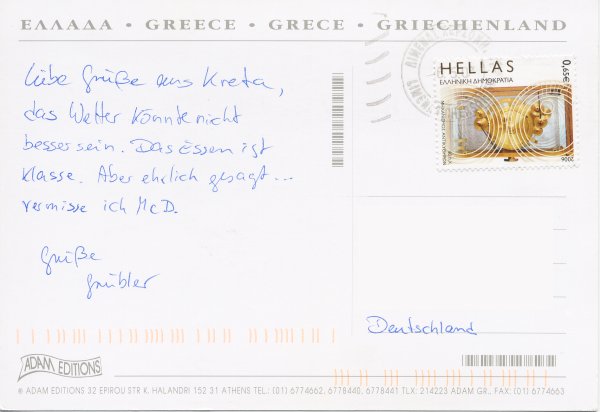 ΕΛΛΑΔΑ • GREECE • GRECE • GRIECHENLAND
HELLAS
ΕΛΛΗΝΙΚΗ ΔΗΜΟΚΡΑΤΙΑ
0,65€
2006
Liebe Grüße aus Kreta,
das Wetter könnte nicht
besser sein. Das Essen ist
klasse. Aber ehrlich gesagt...
vermisse ich McD.
Grüße
Grübler
Deutschland
ADAM EDITIONS
® ADAM EDITIONS 32 EPIROU STR K. HALANDRI 152 31 ATHENS TEL.: (01) 6774662, 6778440, 6778441 TLX: 214223 ADAM GR., FAX: (01) 6774663